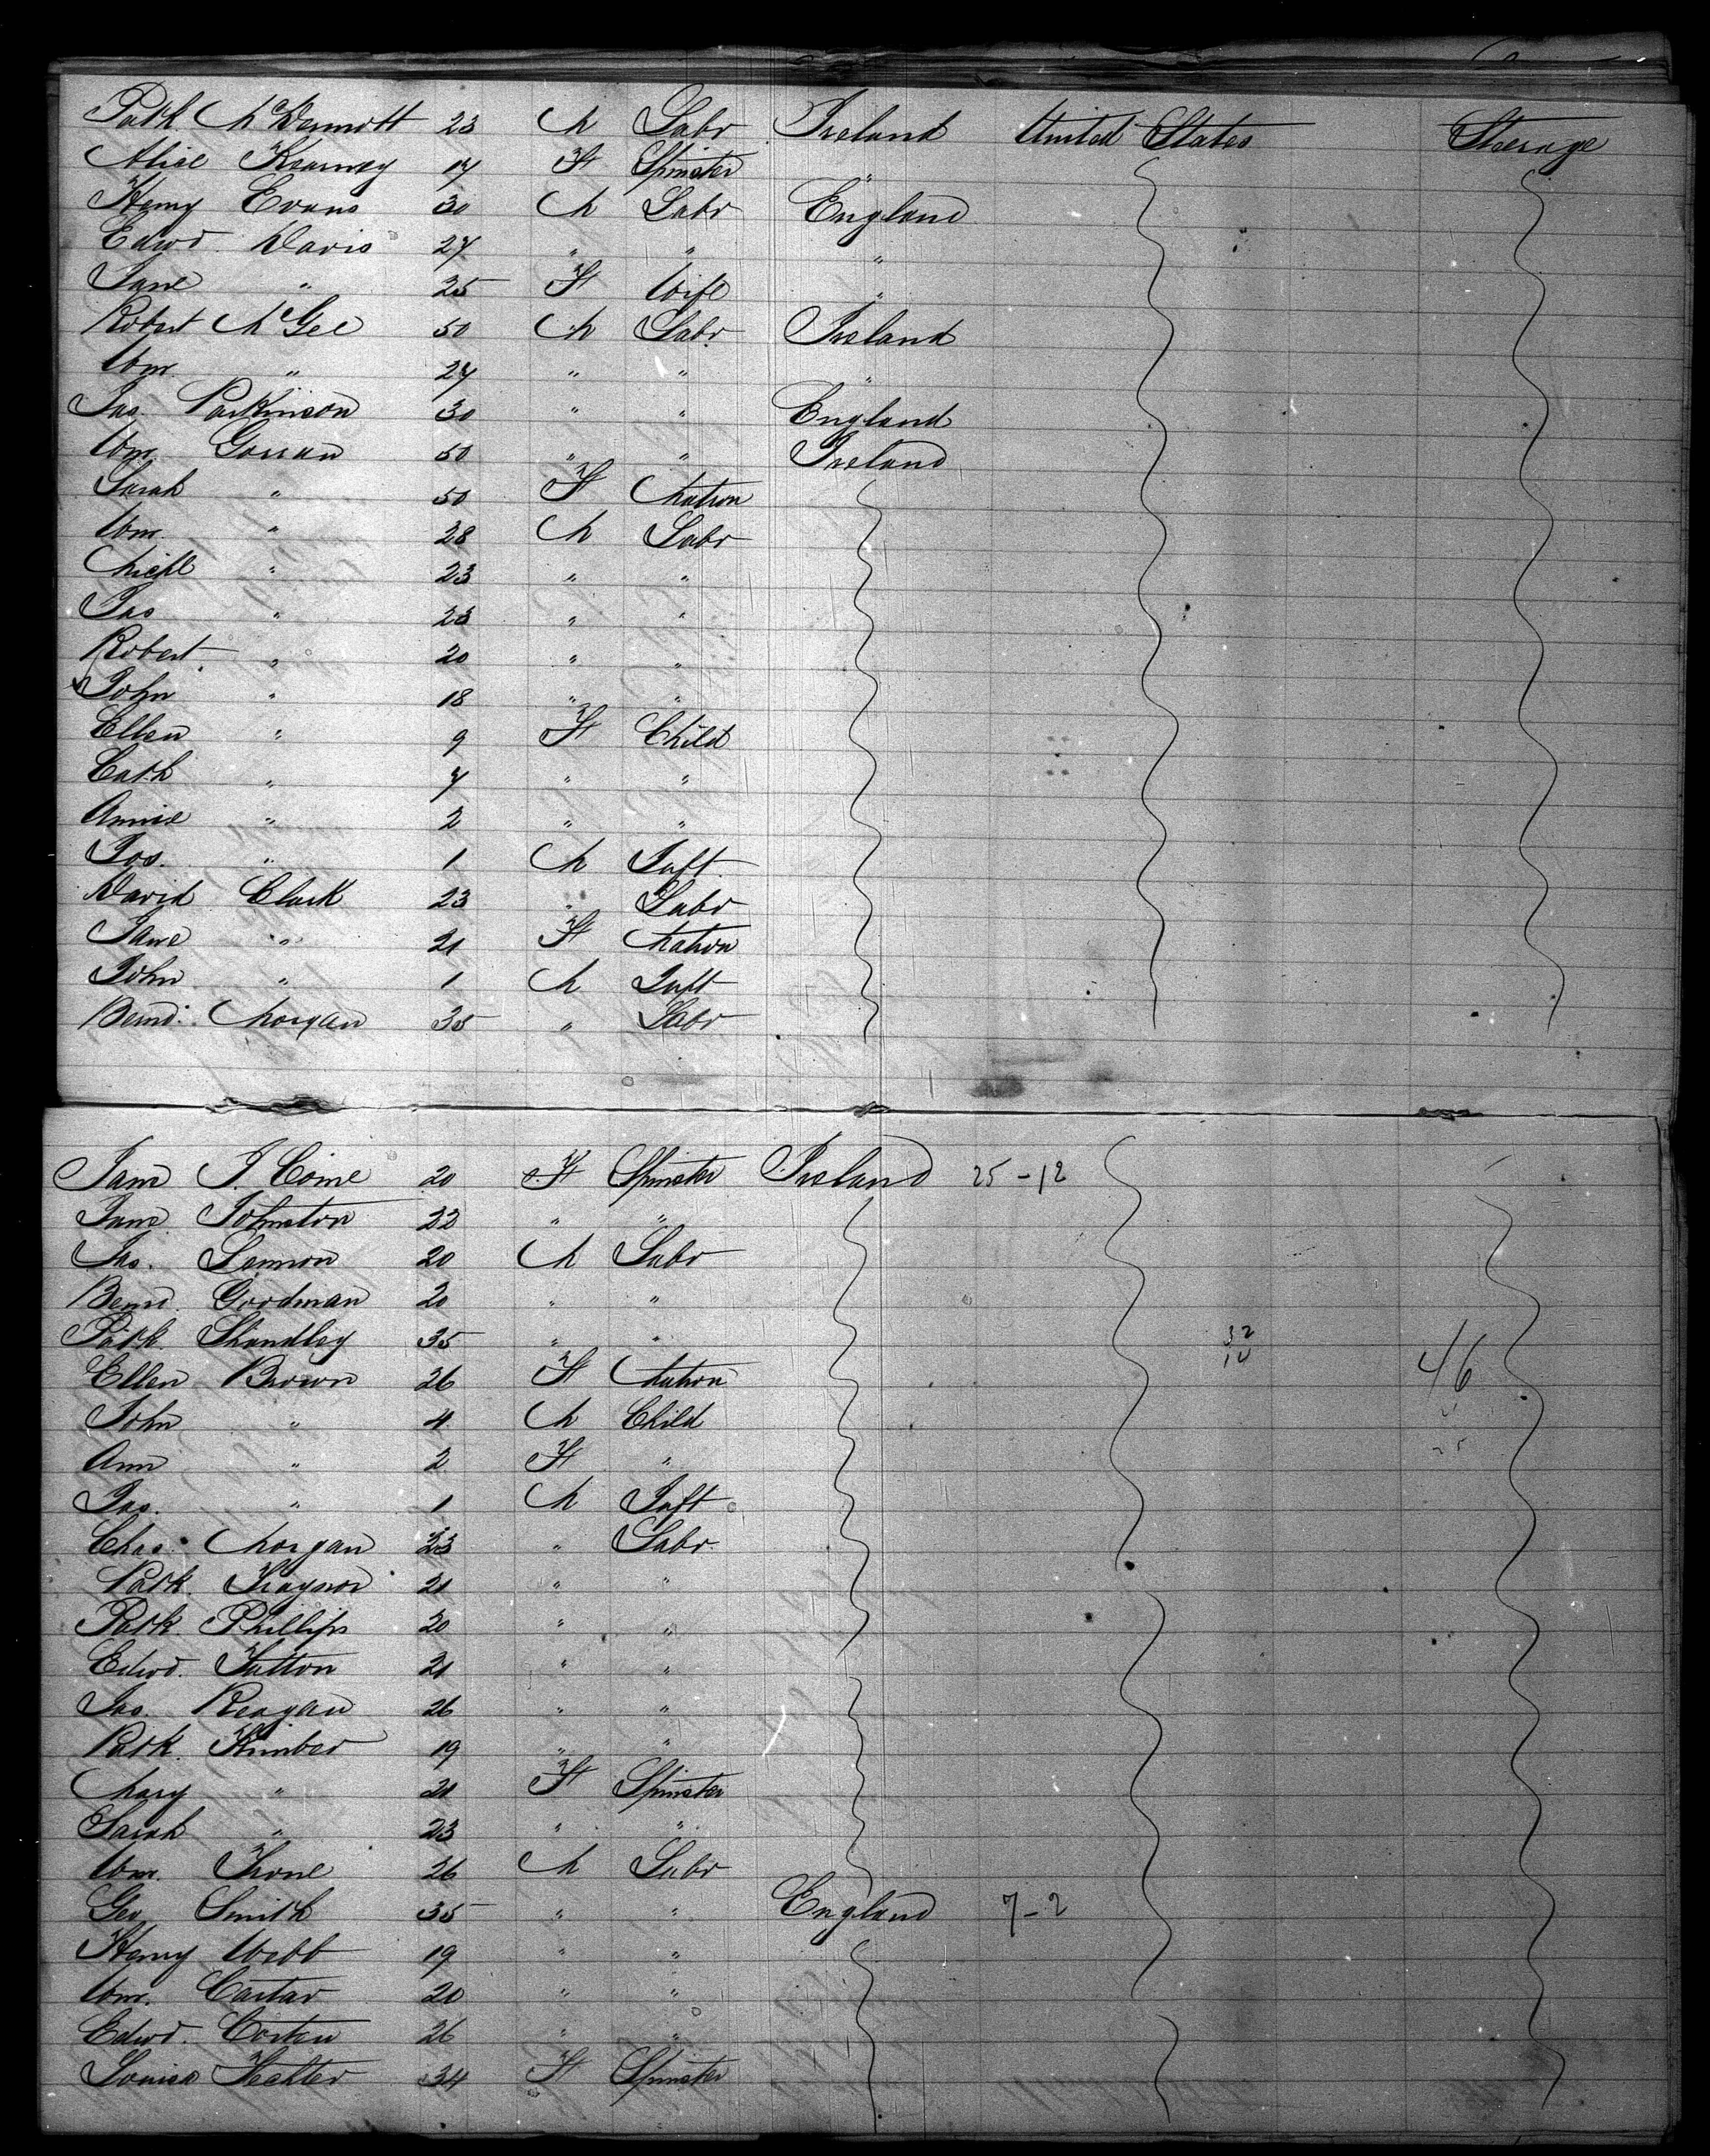 Patk McDermott 23 M Labr Ireland United States Steerage
Alice Kearney 17 F Spinster "
Henry Evans 30 M Labr England
Edwd Davis 27 " " "
Jane " 25 F Wife "
Robert McGee 50 M Labr Ireland
Wm " 27 " " "
Jas. Parkinson 30 " " England
Wm Gorran 50 " " Ireland
Sarah " 50 F Matron
Wm. " 28 M Labr
Michl " 23 " "
Jas " 23 " "
Robert " 20 " "
John " 18 " "
Ellen " 9 F Child
Cath " 7 " "
Annie " 2 " "
Jos. " 1 M Inft.
David Clark 23 " Labr
Jane " 21 F Matron
John " 1 M Inft
Bernd. Morgan 35 " Labr
Jane J. Coine 20 F Spinster Ireland 25-12
Jane Johnston 22 " "
Jas. Lennon 20 M Labr
Bernd. Goodman 20 " "
Patk. Shandley 35 " " 32
14 46
Ellen Brown 26 F Matron
John " 4 M Child
Ann " 2 F "
Jas. " 1 M Inft
Chas. Morgan 23 " Labr.
Patk. Traynor 21 " "
Patk Phillips 20 " "
Edwd. Hutton 21 " "
Jas. Reagan 26 " "
Patk. Kimber 19 " "
Mary " 21 F Spinster
Sarah " 23 " "
Wm. 26 M Labr
Geo Smith 35 " " England 7-2
Henry Webb 19 " "
Wm. Cartar 20 " "
Edwd. 26 " "
Louisa Fechter 34 F Spinster